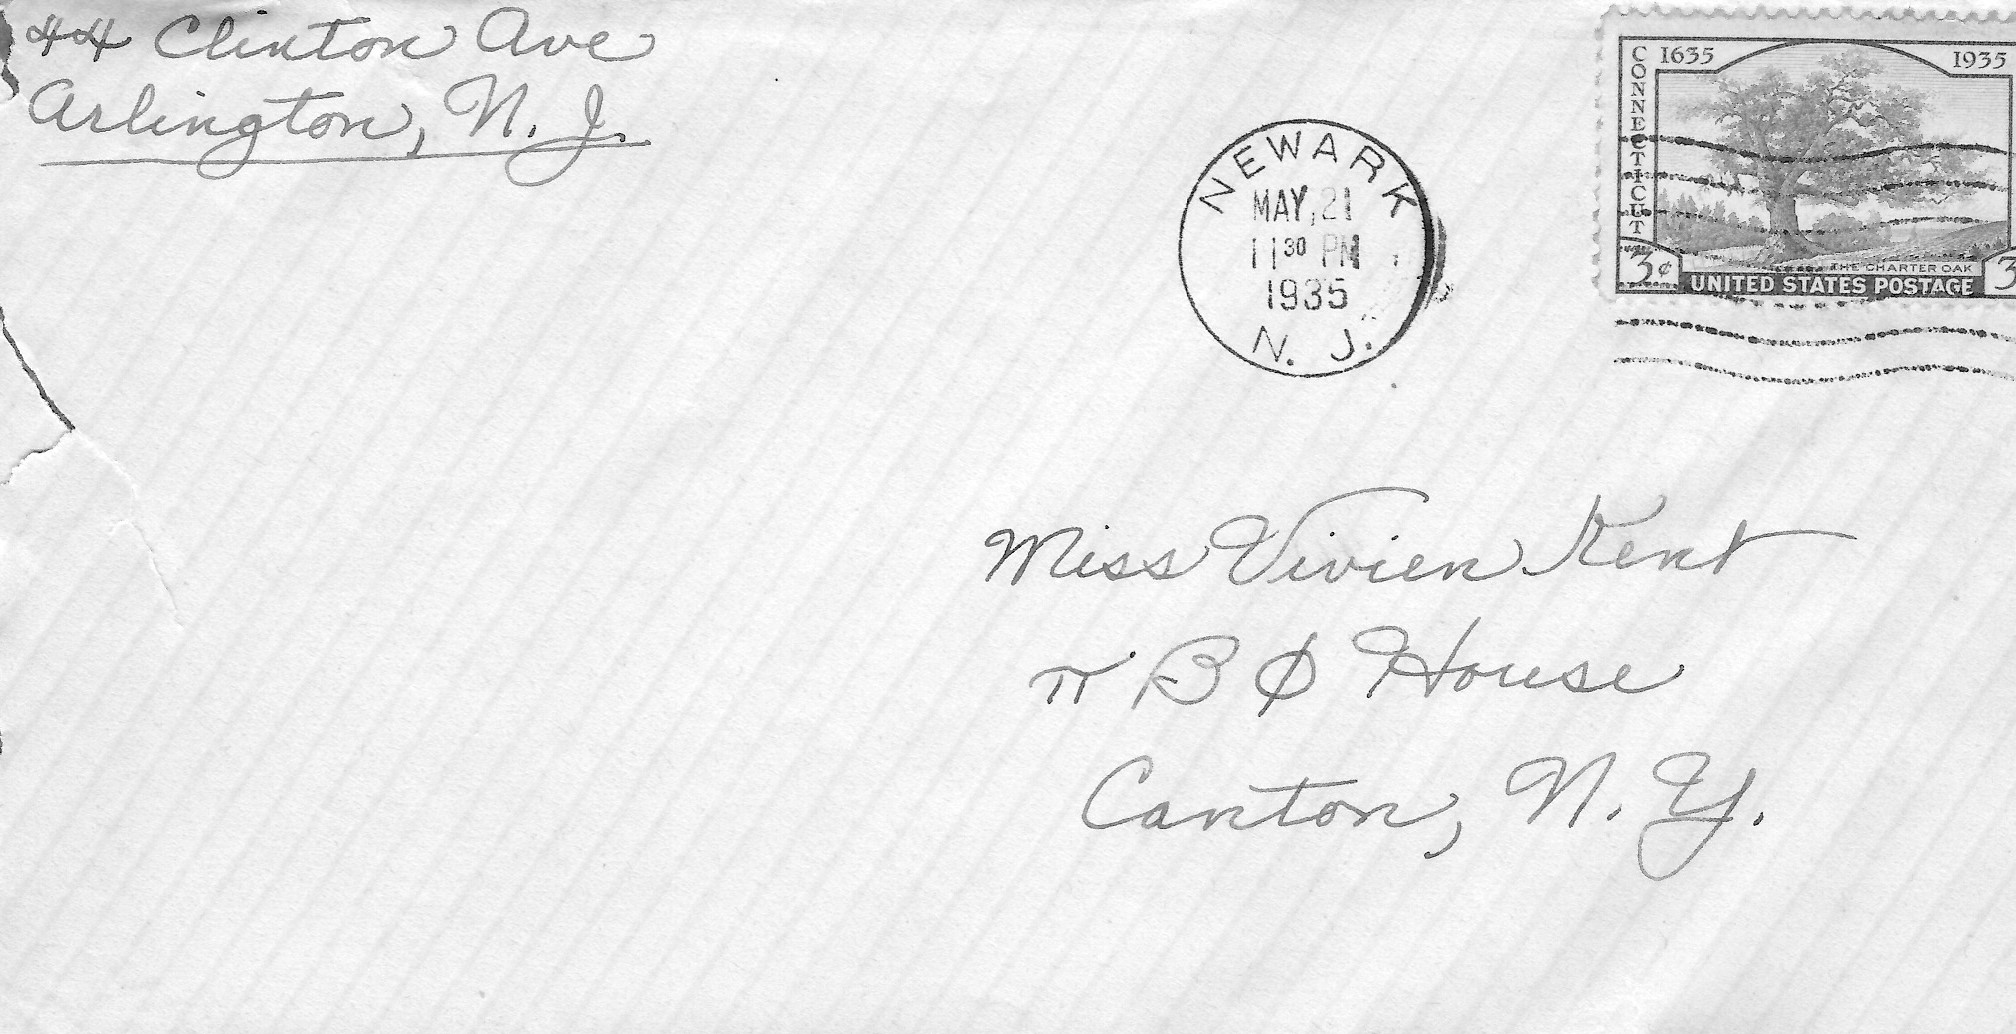 44 Clinton Ave
Arlington, N. J.
NEWARK
MAY, 21
11 30 PM
1935
N. J.
CONNECTICUT
1635 1935
THE CHARTER OAK
3¢ UNITED STATES POSTAGE 3
Miss Vivien Kent
π B Φ House
Canton, N. Y.